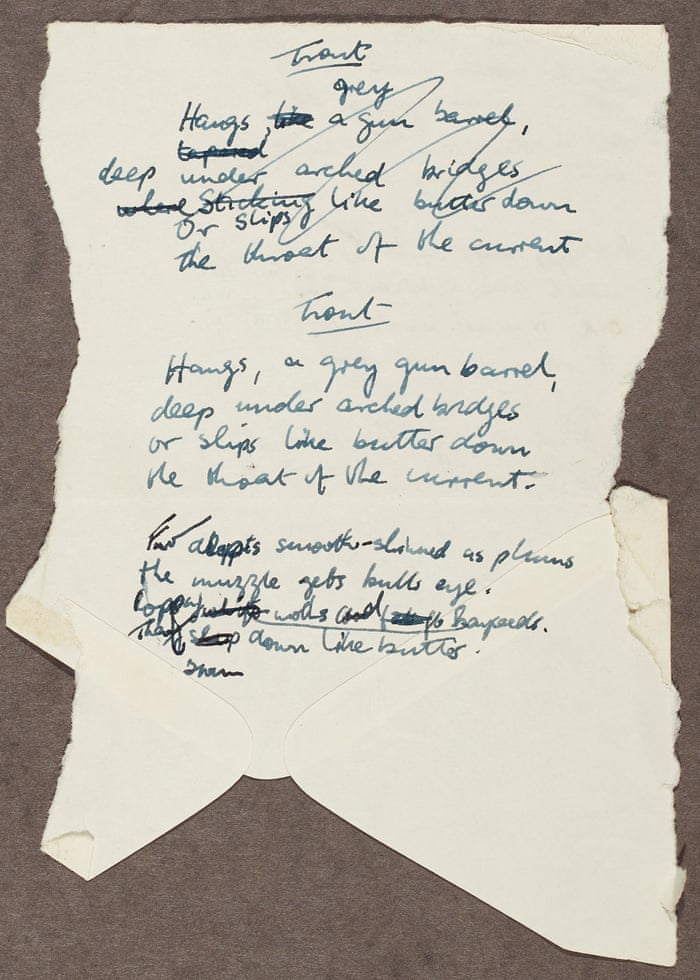 Trout
grey
Hangs, like a gun barrel,
tapered
deep under arched bridges
where Sticking like butter down
Or slips
the throat of the current
Trout
Hangs, a grey gun barrel,
deep under arched bridges
or slips like butter down
the throat of the current.
depths smooth-skinned as plums
the muzzle gets bulls eye.
and
down like butter.